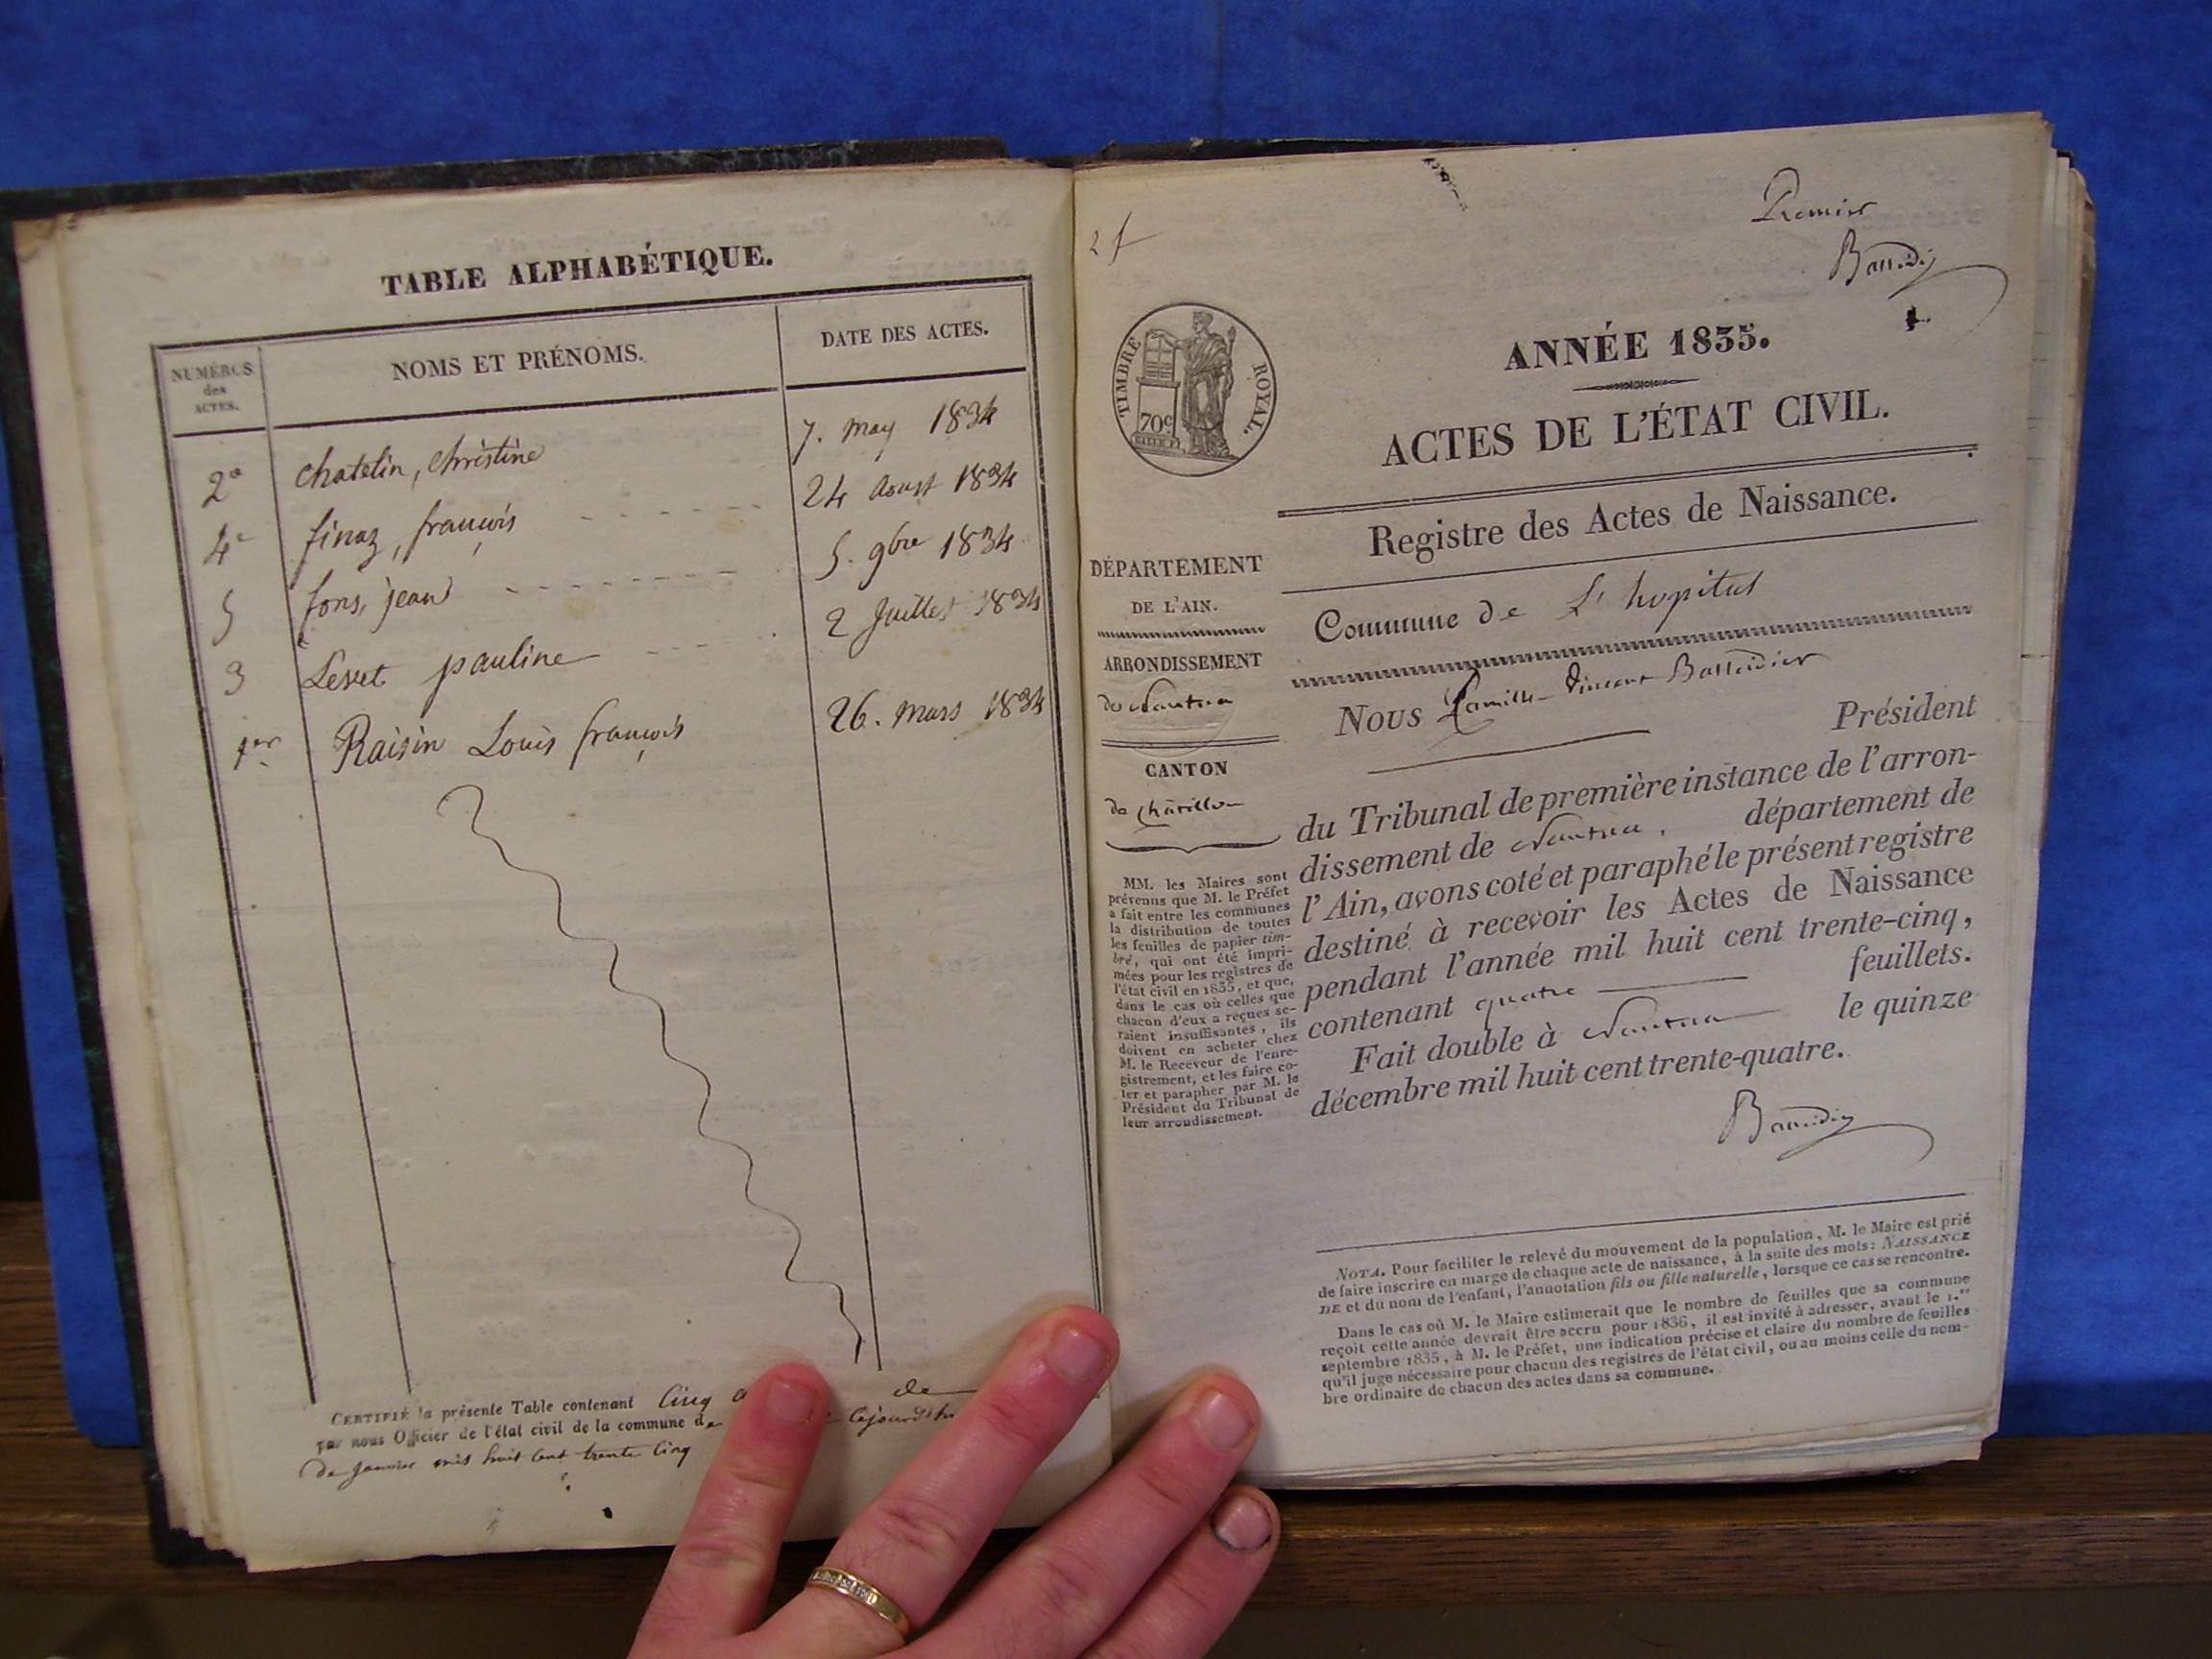 TABLE ALPHABÉTIQUE.
NUMÉROS des ACTES.
NOMS ET PRÉNOMS.
DATE DES ACTES.
2e chatelin, christine 7. may 1834
4e finaz, françois 24 Aoust 1834
5 fons, jean 5. 9bre 1834
3 Levet pauline 2 Juillet 1834
1er Raisin Louis françois 26. mars 1834
CERTIFIÉ la présente Table contenant Cinq de
par nous Officier de l'état civil de la commune de cejourd'hui
de janvier mil huit cent trente cinq
2 f
Premier
TIMBRE ROYAL.
70c
ANNÉE 1835.
ACTES DE L'ÉTAT CIVIL.
Registre des Actes de Naissance.
DÉPARTEMENT
DE L'AIN.
ARRONDISSEMENT
de Nantua
CANTON
de Châtillon
MM. les Maires sont
prévenus que M. le Préfet
a fait entre les communes
la distribution de toutes
les feuilles de papier tim-
bré, qui ont été impri-
mées pour les registres de
l'état civil en 1835, et que,
dans le cas où celles que
chacun d'eux a reçues se-
raient insuffisantes, ils
doivent en acheter chez
M. le Receveur de l'enre-
gistrement, et les faire co-
ter et parapher par M. le
Président du Tribunal de
leur arrondissement.
Commune de L'hopital
Nous Camille Vincent
Président
du Tribunal de première instance de l'arron-
dissement de Nantua, département de
l'Ain, avons coté et paraphé le présent registre
destiné à recevoir les Actes de Naissance
pendant l'année mil huit cent trente-cinq,
contenant quatre feuillets.
Fait double à Nantua le quinze
décembre mil huit cent trente-quatre.
NOTA. Pour faciliter le relevé du mouvement de la population, M. le Maire est prié
de faire inscrire en marge de chaque acte de naissance, à la suite des mots: NAISSANCE
DE et du nom de l'enfant, l'annotation fils ou fille naturelle, lorsque ce cas se rencontre.
Dans le cas où M. le Maire estimerait que le nombre de feuilles que sa commune
reçoit cette année devrait être accru pour 1836, il est invité à adresser, avant le 1.er
septembre 1835, à M. le Préfet, une indication précise et claire du nombre de feuilles
qu'il juge nécessaire pour chacun des registres de l'état civil, ou au moins celle du nom-
bre ordinaire de chacun des actes dans sa commune.